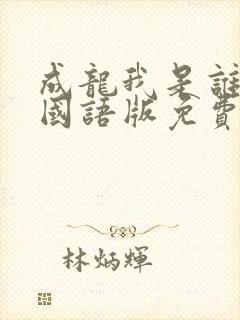 成龍我是誰
國語版免費
林炳輝